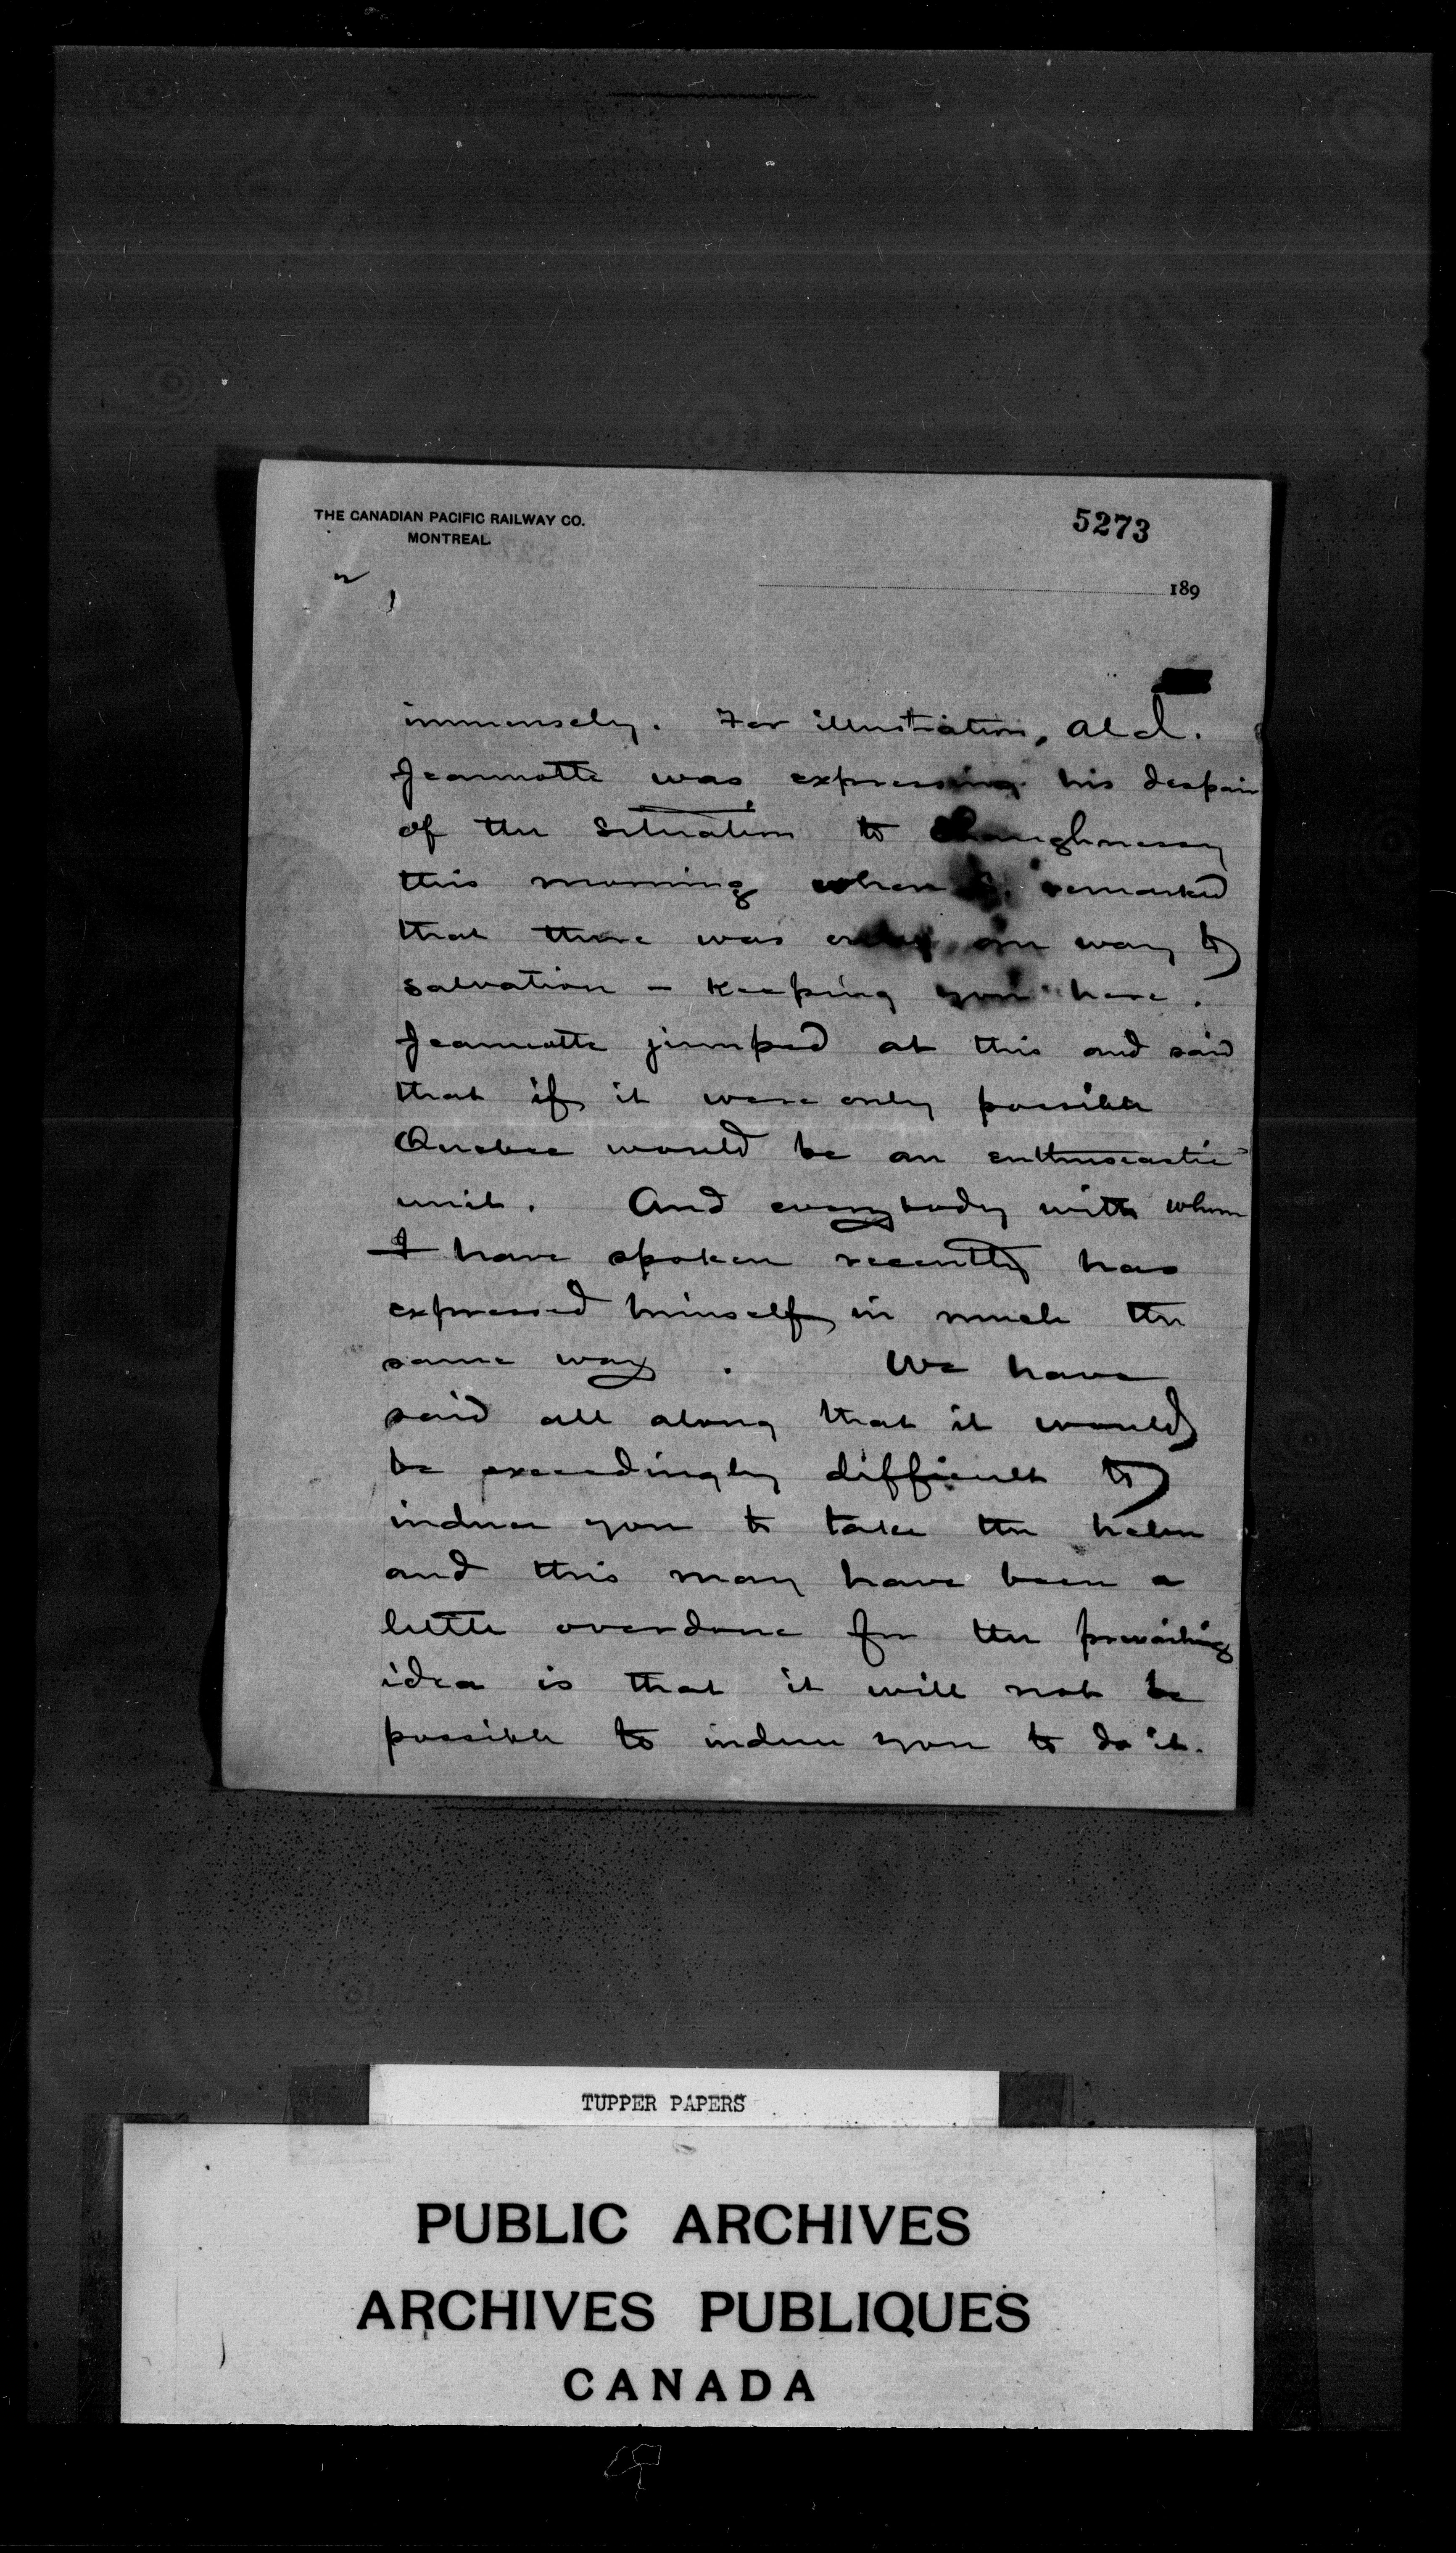 THE CANADIAN PACIFIC RAILWAY CO.
MONTREAL
5273
189
immensely. For illustration, Ald.
Jeannotte was expressing his despair
of the situation to Shaughnessy
this morning when S. remarked
that there was only one way to
salvation - Keeping you here.
Jeannotte jumped at this and said
that if it were only possible
Quebec would be an enthusiastic
unit. And everybody with whom
I have spoken recently has
expressed himself in much the
same way. We have
said all along that it would
be exceedingly difficult to
induce you to take the helm
and this may have been a
little overdone for the prevailing
idea is that it will not be
possible to induce you to do it.
TUPPER PAPERS
PUBLIC ARCHIVES
ARCHIVES PUBLIQUES
CANADA